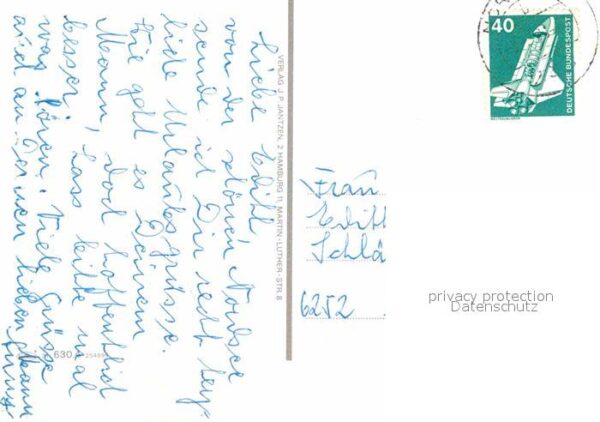 Liebe Edith
von der schönen Nordsee
sende ich Dir recht herz
liche Urlaubsgrüsse.
Wie geht es Deinem
Mann, doch hoffentlich
besser, lass bitte mal
was hören. Viele Grüsse
auch an Deinen lieben Mann
VERLAG J. P. JANTZEN, 2 HAMBURG 11, MARTIN-LUTHER-STR. 8
630
40
DEUTSCHE BUNDESPOST
Frau
Edith
Schlä
6252
privacy protection
Datenschutz